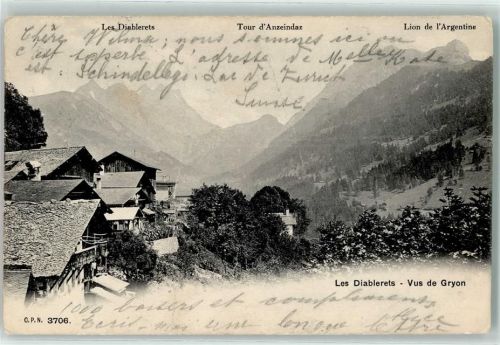 Les Diablerets Tour d'Anzeindaz Lion de l'Argentine
Chère Wilma; nous sommes ici ou
c'est l'adresse de Melle
Schindellegi Lac de Zurich
Suisse
Les Diablerets - Vus de Gryon
C.P.N. 3706.
1000 baisers et compliments
mais une longue lettre